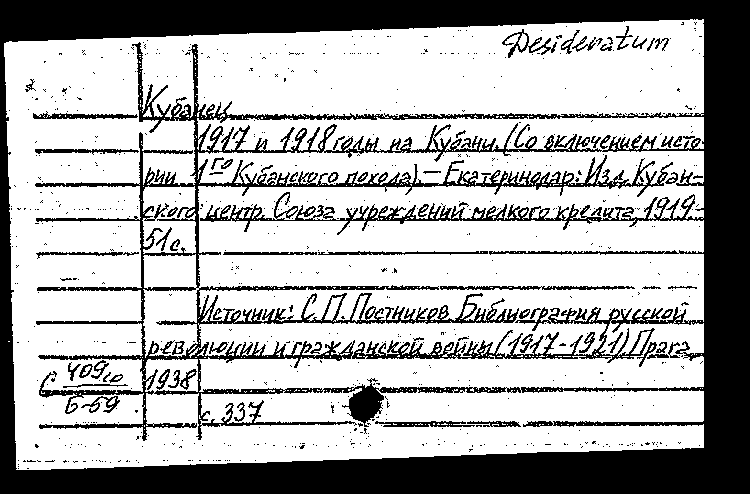 Desideratum
Кубанец
1917 и 1918 годы на Кубани. (Со включением исто-
рии 1го Кубанского похода). — Екатеринодар: Изд. Кубан-
ского центр. Союза учреждений мелкого кредита, 1919 -
51 с.
Источник: С. П. Постников. Библиография русской
революции и гражданской войны (1917-1921). Прага,
1938
с. 337
С 409
Б-59